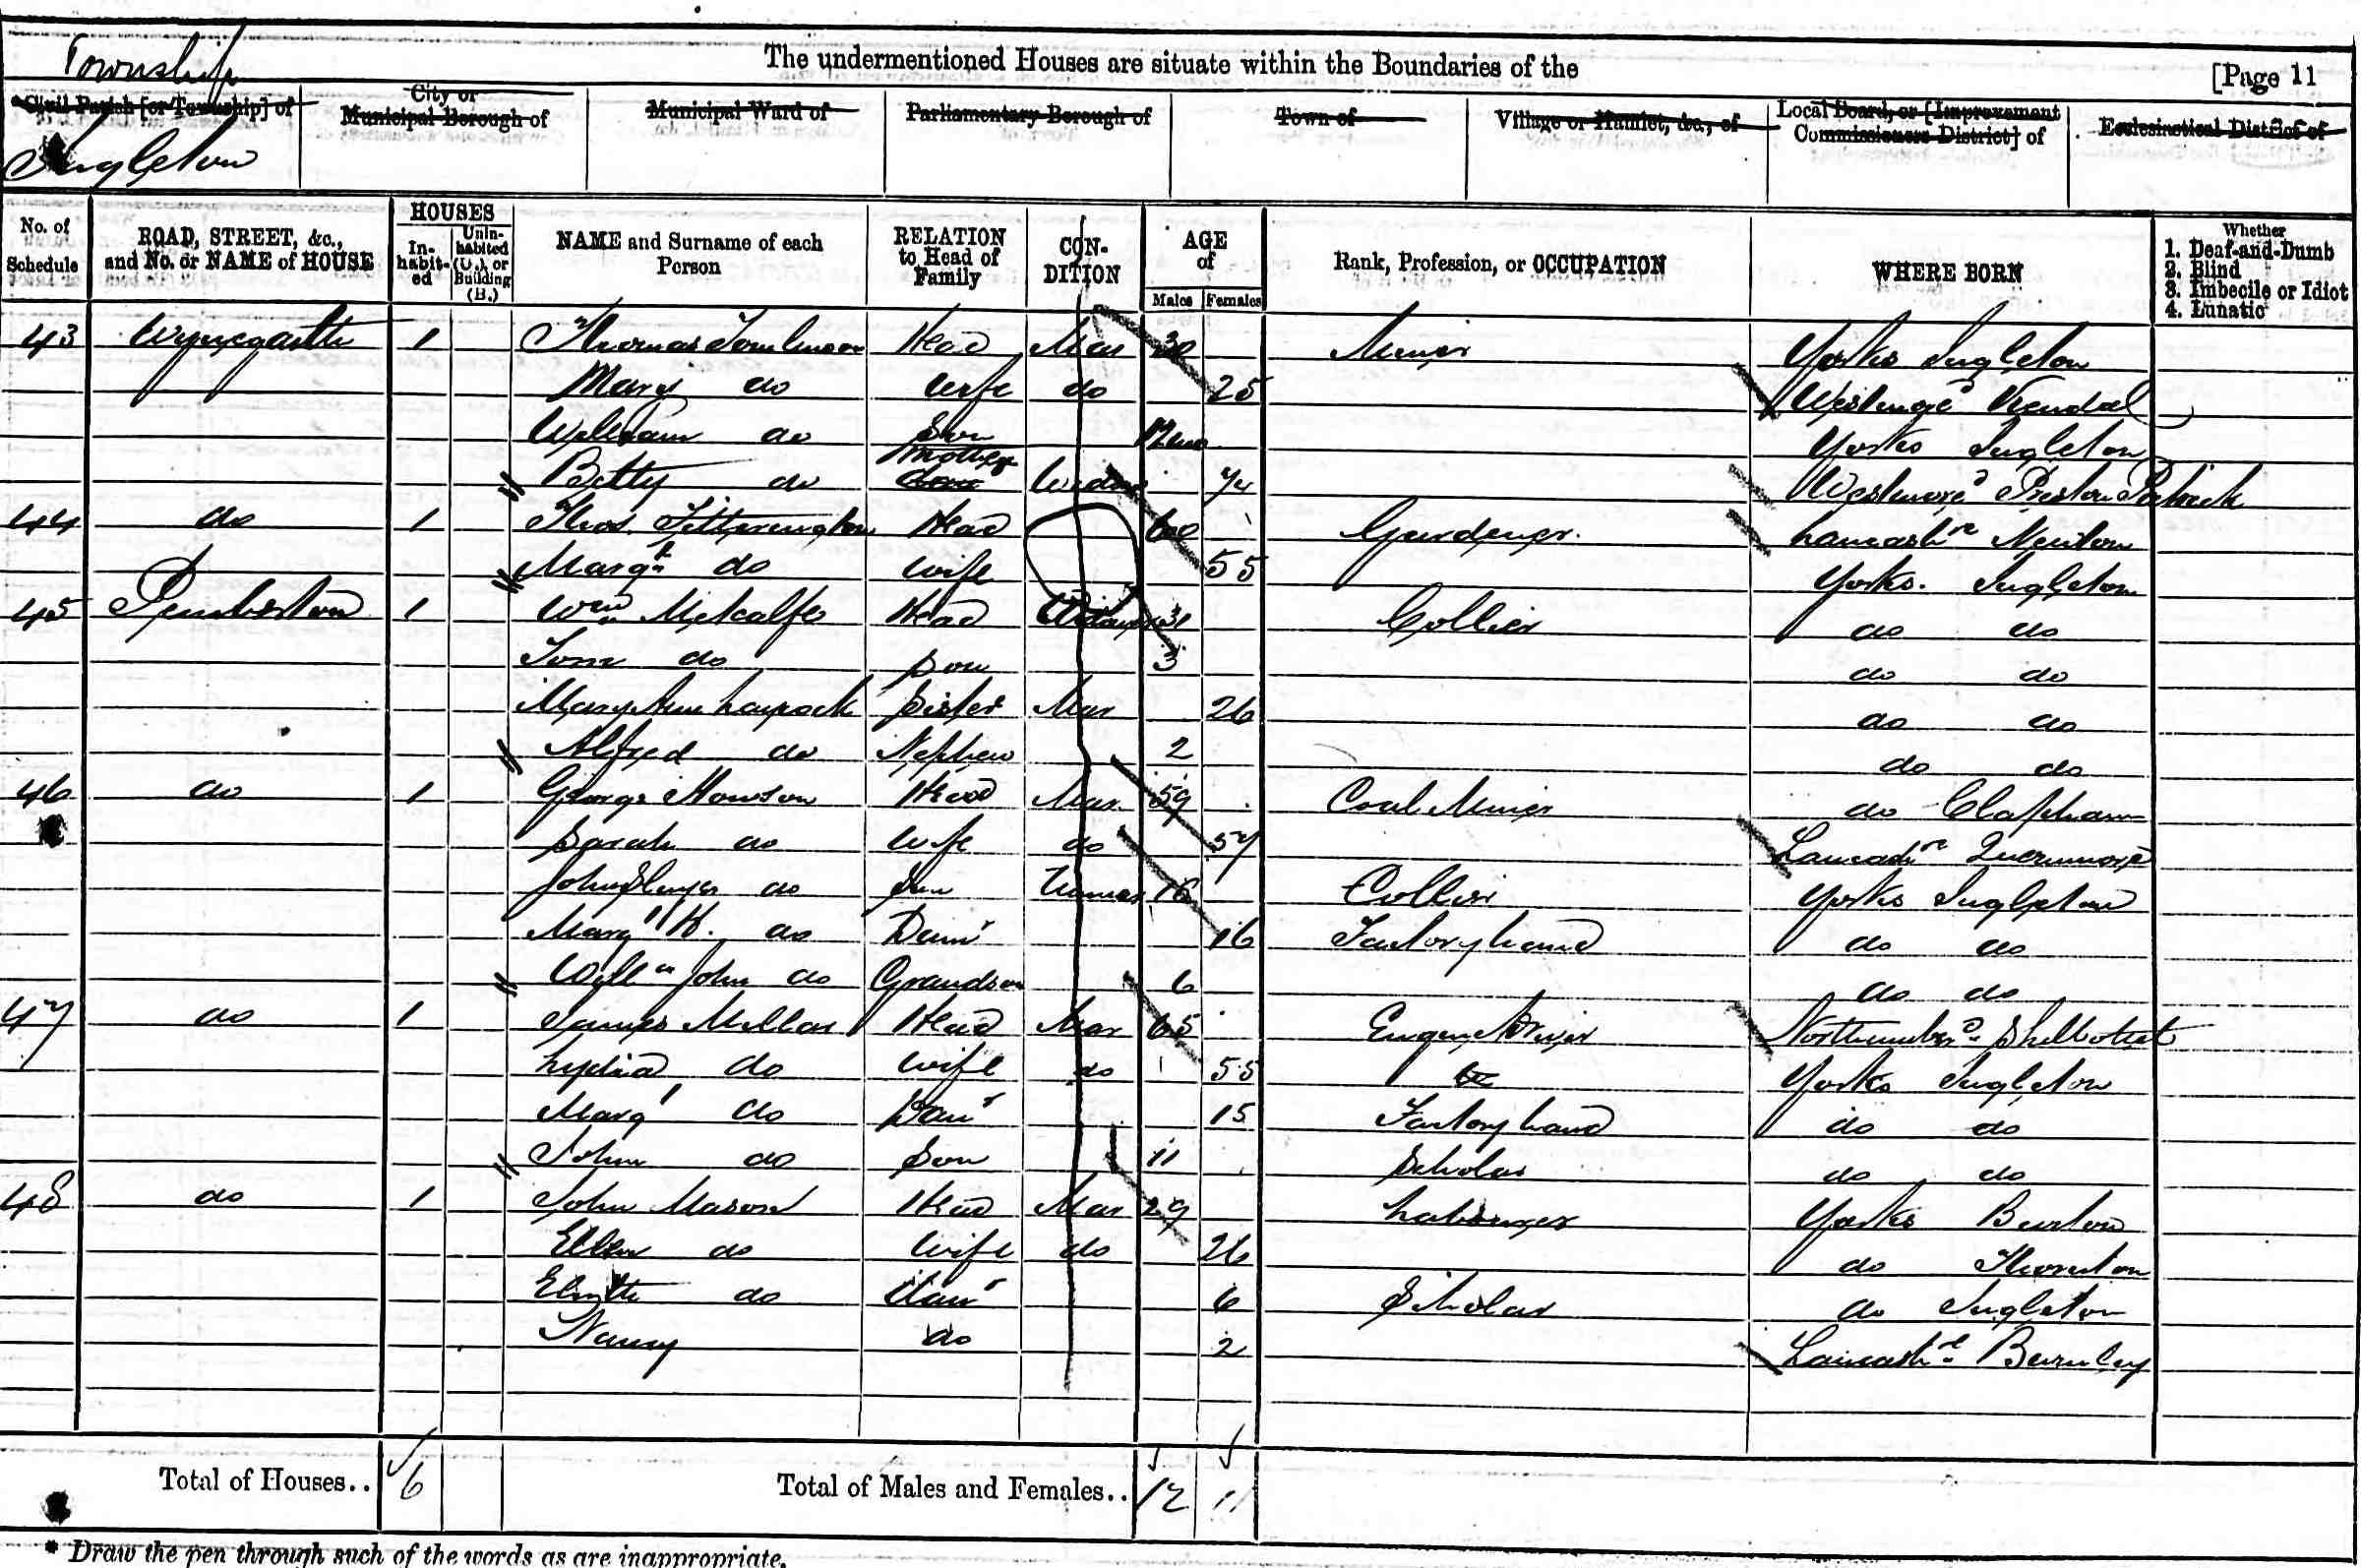 The undermentioned Houses are situate within the Boundaries of the
[Page 11
Township
Civil Parish [or Township] of
City or Municipal Borough of
Municipal Ward of
Parliamentary Borough of
Town of
Village or Hamlet, &c., of
Local Board, or [Improvement Commissioners District] of
Ecclesiastical District of
Ingleton
No. of Schedule
ROAD, STREET, &c., and No. or NAME of HOUSE
HOUSES
In-habit-ed
Unin-habited (U.), or Building (B.)
NAME and Surname of each Person
RELATION to Head of Family
CON-DITION
AGE of
Males
Females
Rank, Profession, or OCCUPATION
WHERE BORN
Whether
1. Deaf-and-Dumb
2. Blind
3. Imbecile or Idiot
4. Lunatic
43 1 Thomas Tomlinson Head Mar 30 Miner Yorks Ingleton
Mary do Wife do 25 Westmore^d Kendal
William do Son Yorks Ingleton
Betty do Mother 74 Westmore^d Preston Patrick
44 do 1 Thos. Titterington Head 60 Gardener. Lancash^re Newton
Marg^t do Wife 55 Yorks. Ingleton
45 1 W^m Metcalfe Head 31 Collier do do
Tom do Son 3 do do
Mary Ann Laycock Sister Mar 26 do do
Alfred do Nephew 2 do do
46 do 1 George Howson Head Mar. 59 Coal Miner do Clapham
Sarah do Wife do 57 Lancash^re Quernmore
John do Son Unmar 16 Collier Yorks Ingleton
Marg^t H. do Daur 16 Factory hand do do
Will^m John do Grandson 6 do do
47 do 1 James Millar Head Mar 65 Engine Driver Northumber^d
Lydia do Wife do 55 Yorks Ingleton
Marg^t do Dau^r 15 Factory hand do do
John do Son 11 Scholar do do
48 do 1 John Mason Head Mar 29 Labourer Yorks Burton
Ellen do Wife do 26 do Thornton
do Dau^r 6 Scholar do Ingleton
Nancy do 2 Lancash^re Burnley
Total of Houses.. 6
Total of Males and Females.. 12 11
* Draw the pen through such of the words as are inappropriate.